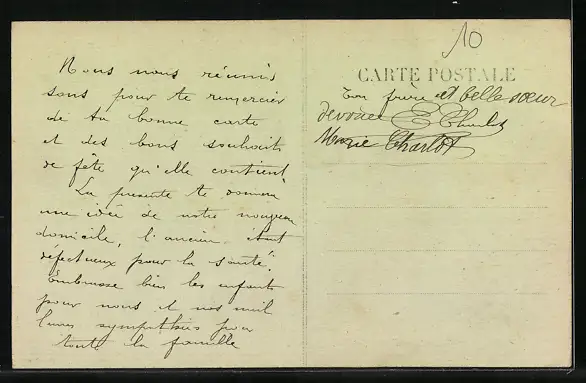 Nous nous réunis
sons pour te remercier
de ta bonne carte
et des bons souhait
de fête qu'elle contient
La présente te donnera
une idée de notre nouveau
domicile, l'ancien étant
défectueux pour la santé.
Embrasse bien les enfants
pour nous et nos meil
leures sympathies pour
toute la famille
10
CARTE POSTALE
Ton frère et belle sœur
dévoués E Charlot
Marie Charlot